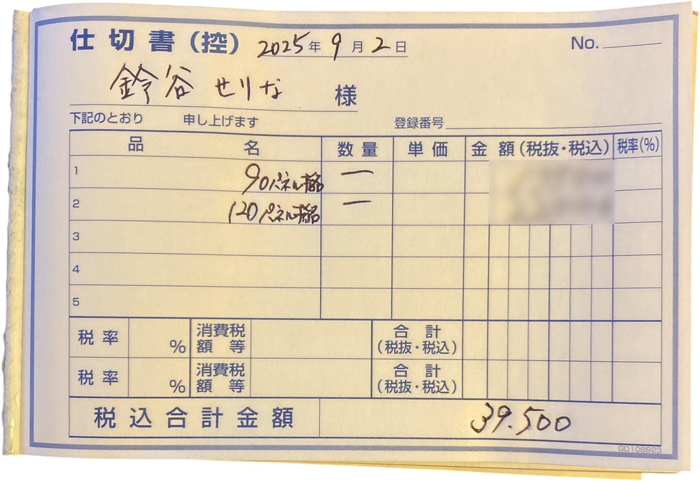 仕切書(控) 2025年9月2日 No.
鈴谷 せりな 様
下記のとおり 申し上げます 登録番号
品名 数量 単価 金額(税抜・税込) 税率(%)
1 90パネル 一
2 120パネル 一
3
4
5
税率 % 消費税額等 合計(税抜・税込)
税率 % 消費税額等 合計(税抜・税込)
税込合計金額 39.500